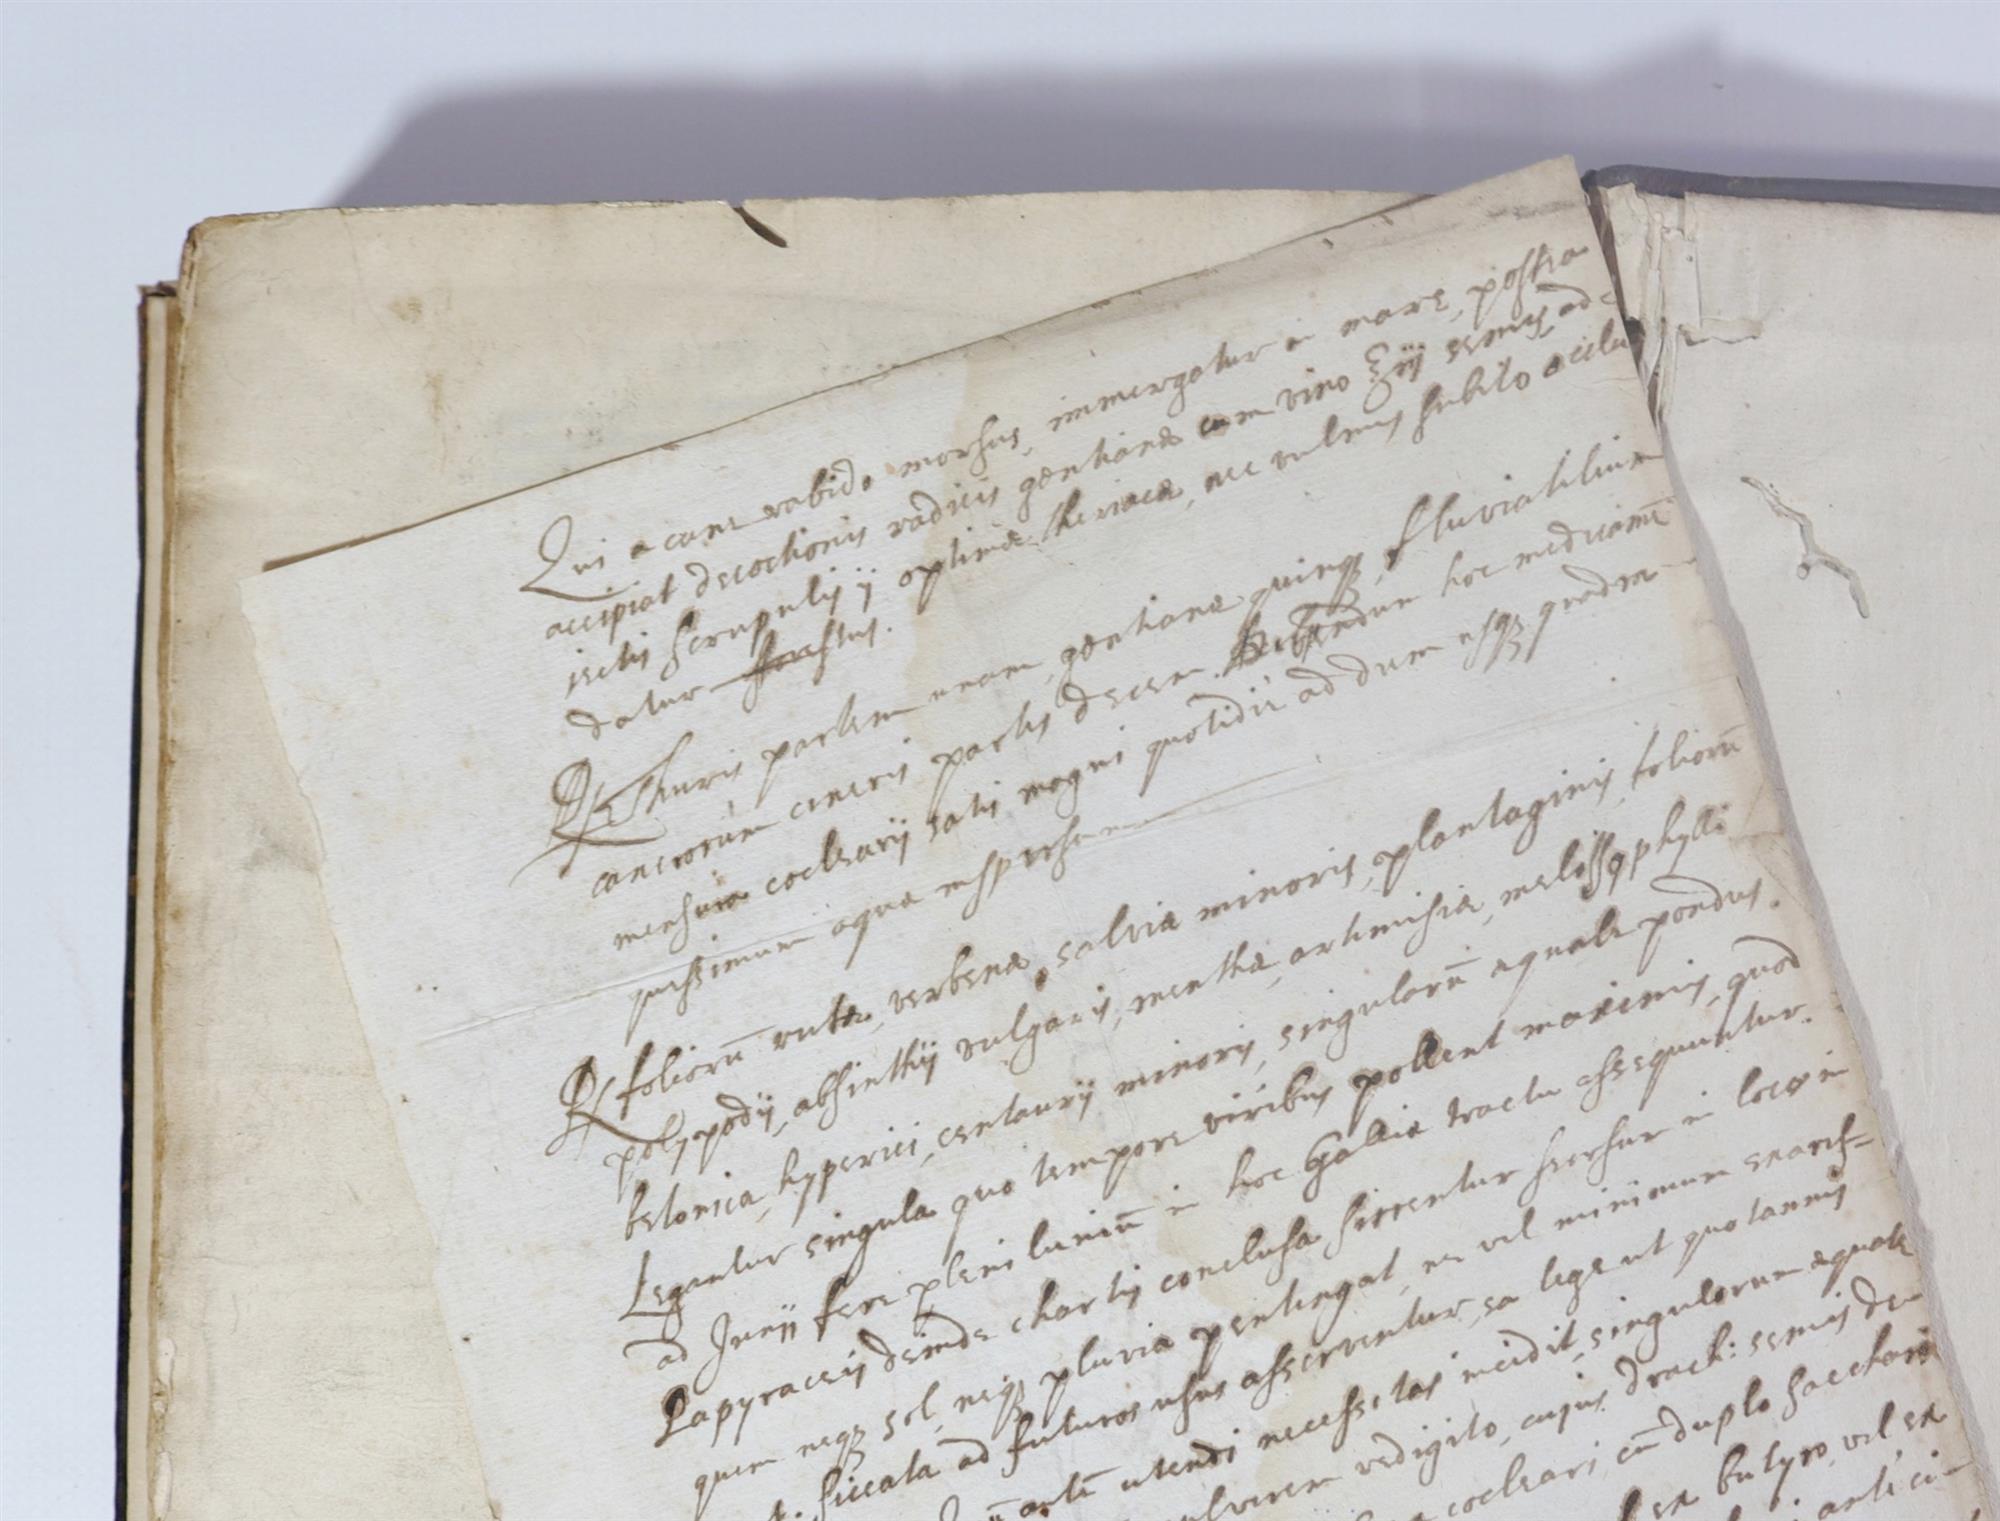 Qui a cane rabido morsus, immergatur in mare, postea
accipiat decoctionis radicis gentianæ cum vino ℥iij semis, ad-
jectis scrupulis ij optimæ theriacæ, nec vulnus subito oclu
datur
℞ Thuris partem unam, gentianæ quinqꝫ, fluviatilium
cancrorum cineris partes decem. Bibendum hoc medicamē
mensura coclearij satis magni quotidie ad dum usqꝫ quadra-
gessimum aqua
℞ foliorū rutæ, verbenæ, salviæ minoris, plantaginis, foliorū
polypodij, absinthij vulgaris, menthæ, artemisiæ, melissophylli
betonicæ, hyperici, centaurij minoris, singulorū æquale pondus.
Legantur singula quo tempore viribus pollent maximis, quod
ad Junij fere plenilunium in hoc Galliæ tractu assequuntur.
Papyraceis deinde chartis conclusa siccentur seorsur in loco in
quem neqꝫ sol, neqꝫ pluvia pertingat, ne vel minimum exares-
siccata ad futuros usus asserventur, ea lege ut quotannis
utendi necessitas incidit, singulorum æquale
pulverem redigito, cujus drach: semis de-
cocleari, cū duplo sacchari
ex butyro, vel ex
antici-